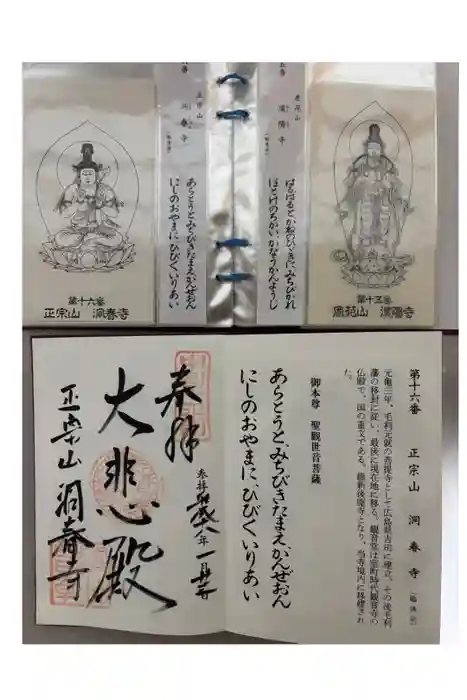 第十六番
正宗山　洞春寺
正宗山
洞春寺
あらとうと、みちびきたまえ、かんぜおん
にしのおやまに、ひびくいりあい
漢陽寺
はるばるとかねのひびきにみちびかれ
ほとけのちかい、かなうかんようじ
第十五番
漢陽寺
第十六番　正宗山　洞春寺（臨済宗）
元亀三年、毛利元就の菩提寺として広島県吉田に建立。その後毛利
藩の移封に従い、最後に現在地に移る。観音堂は室町時代観音寺の
仏殿で、国の重文である。維新後廃寺となり、当寺境内に移修され
た。
御本尊　聖観世音菩薩
あらとうと、みちびきたまえ、かんぜおん
にしのおやまに、ひびくいりあい
奉拝
参拝
年一月
大悲殿
正宗山洞春寺